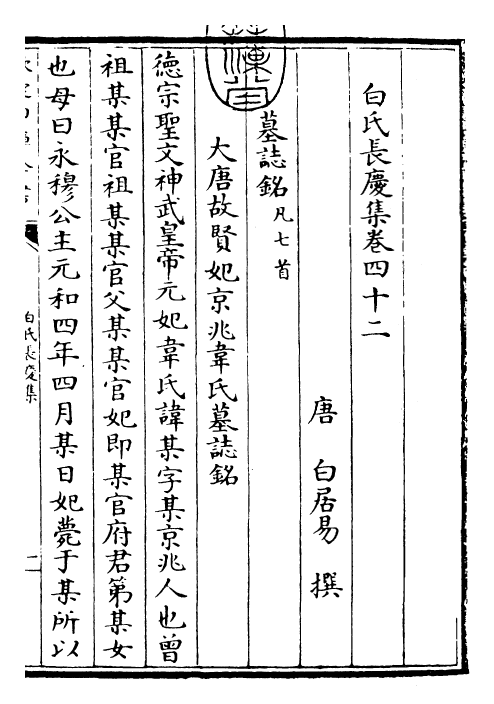 白氏長慶集卷四十二
唐 白居易 撰
墓誌銘凡七首
大唐故賢妃京兆韋氏墓誌銘
德宗聖文神武皇帝元妃韋氏諱某字某京兆人也曾
祖某某官祖某某官父某某官妃即某官府君第某女
也母曰永穆公主元和四年四月某日妃薨于某所以
白氏長慶集